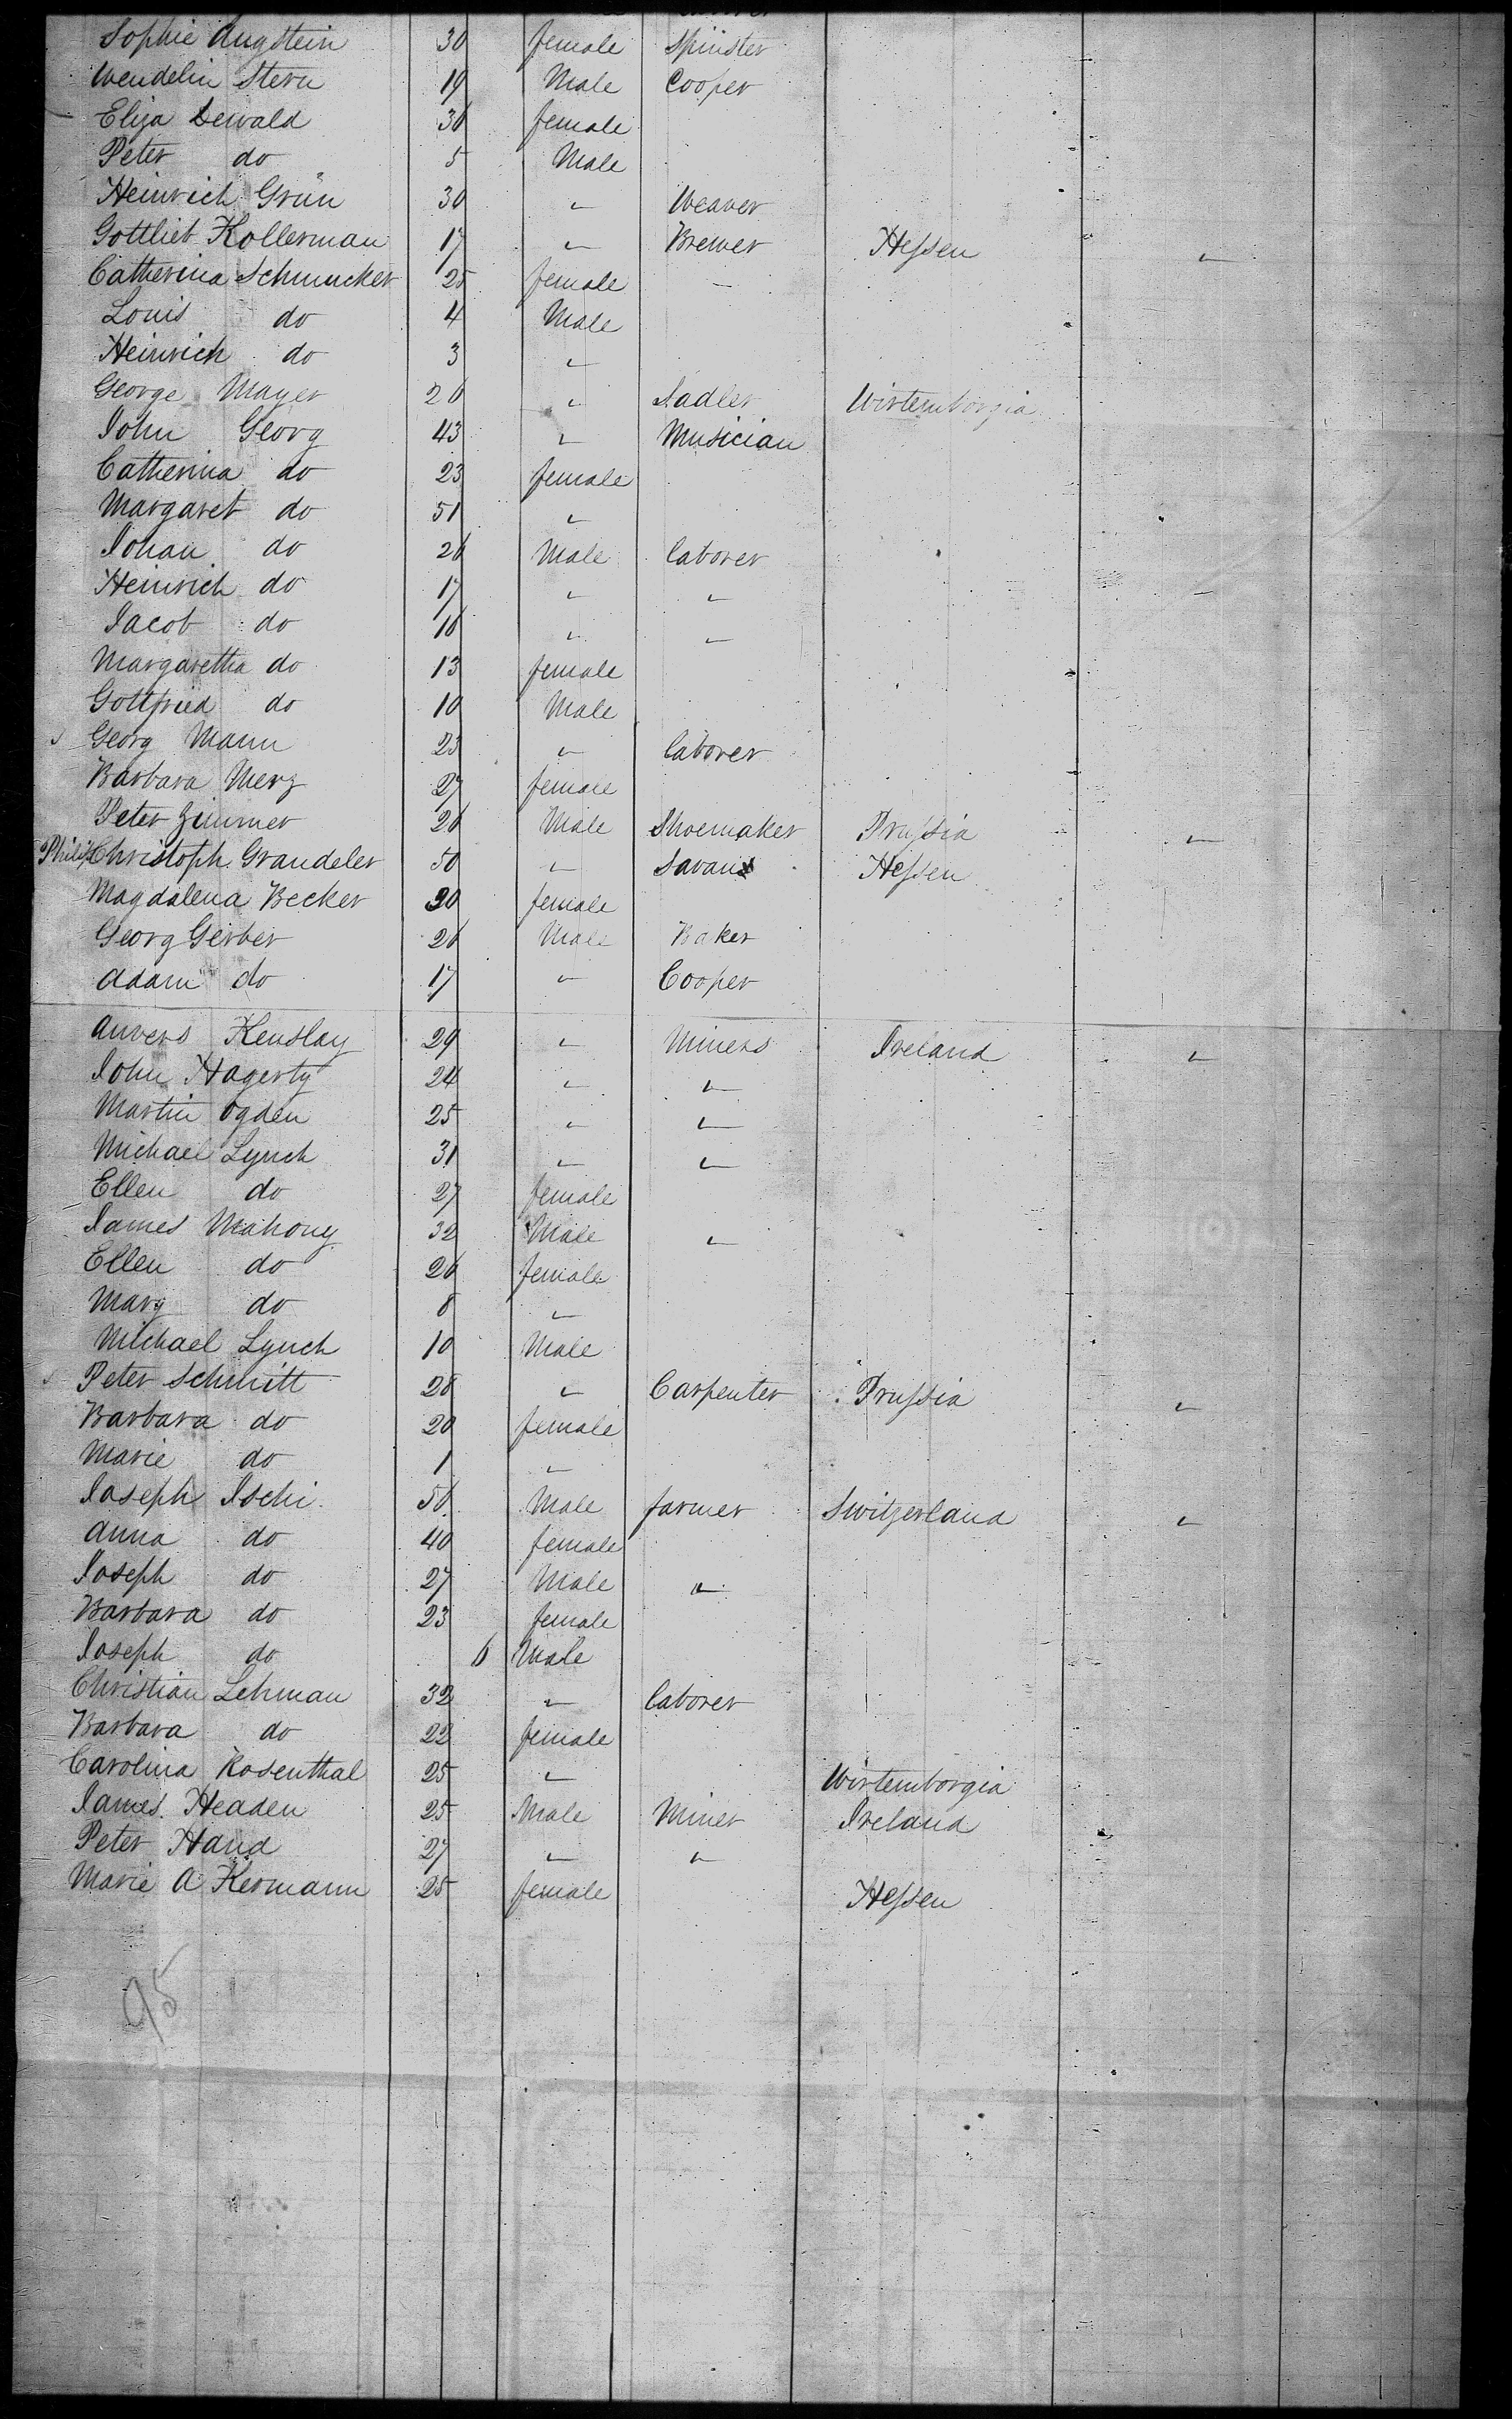 Sophie Augstein 30 female Spinster
Wendelin Stern 19 Male Cooper
Eliza Dewald 36 female
Peter do 5 Male
Heinrich Grün 30 " Weaver
Gottlieb Kollerman 17 " Brewer Hessen "
Catherina Schmucker 25 female
Louis do 4 Male
Heinrich do 3 "
George Mayer 26 " Sadler Wirtemborgia
John Georg 43 " Musician
Catherina do 23 female
Margaret do 51 "
Johan do 26 Male laborer
Heinrich do 17 " "
Jacob do 16 " "
Margaretha do 13 female
Gottfried do 10 Male
Georg Mann 23 " laborer
Barbara Merz 27 female
Peter Zimmer 26 Male Shoemaker Prussia "
Philip Christoph Grandeler 50 " Savant Hessen
Magdalena Becker 30 female
Georg Gerber 26 Male Baker
Adam do 17 " Cooper
Anvers Kenslay 29 " Miners Ireland "
John Hagerty 24 " "
Martin Ogden 25 " "
Michael Lynch 31 " "
Ellen do 27 female
James Mahony 32 Male "
Ellen do 26 female
Mary do 8 "
Michael Lynch 10 Male
Peter Schmitt 28 " Carpenter Prussia "
Barbara do 20 female
Marie do 1 "
Joseph Ischi 56 Male farmer Switzerland "
Anna do 40 female
Joseph do 27 Male "
Barbara do 23 female
Joseph do 6 Male
Christian Lehman 32 " laborer
Barbara do 22 female
Carolina Rosenthal 25 " Wirtemborgia
James Headen 25 Male Miner Ireland
Peter Hand 27 " "
Marie A Kermann 25 female Hessen
95